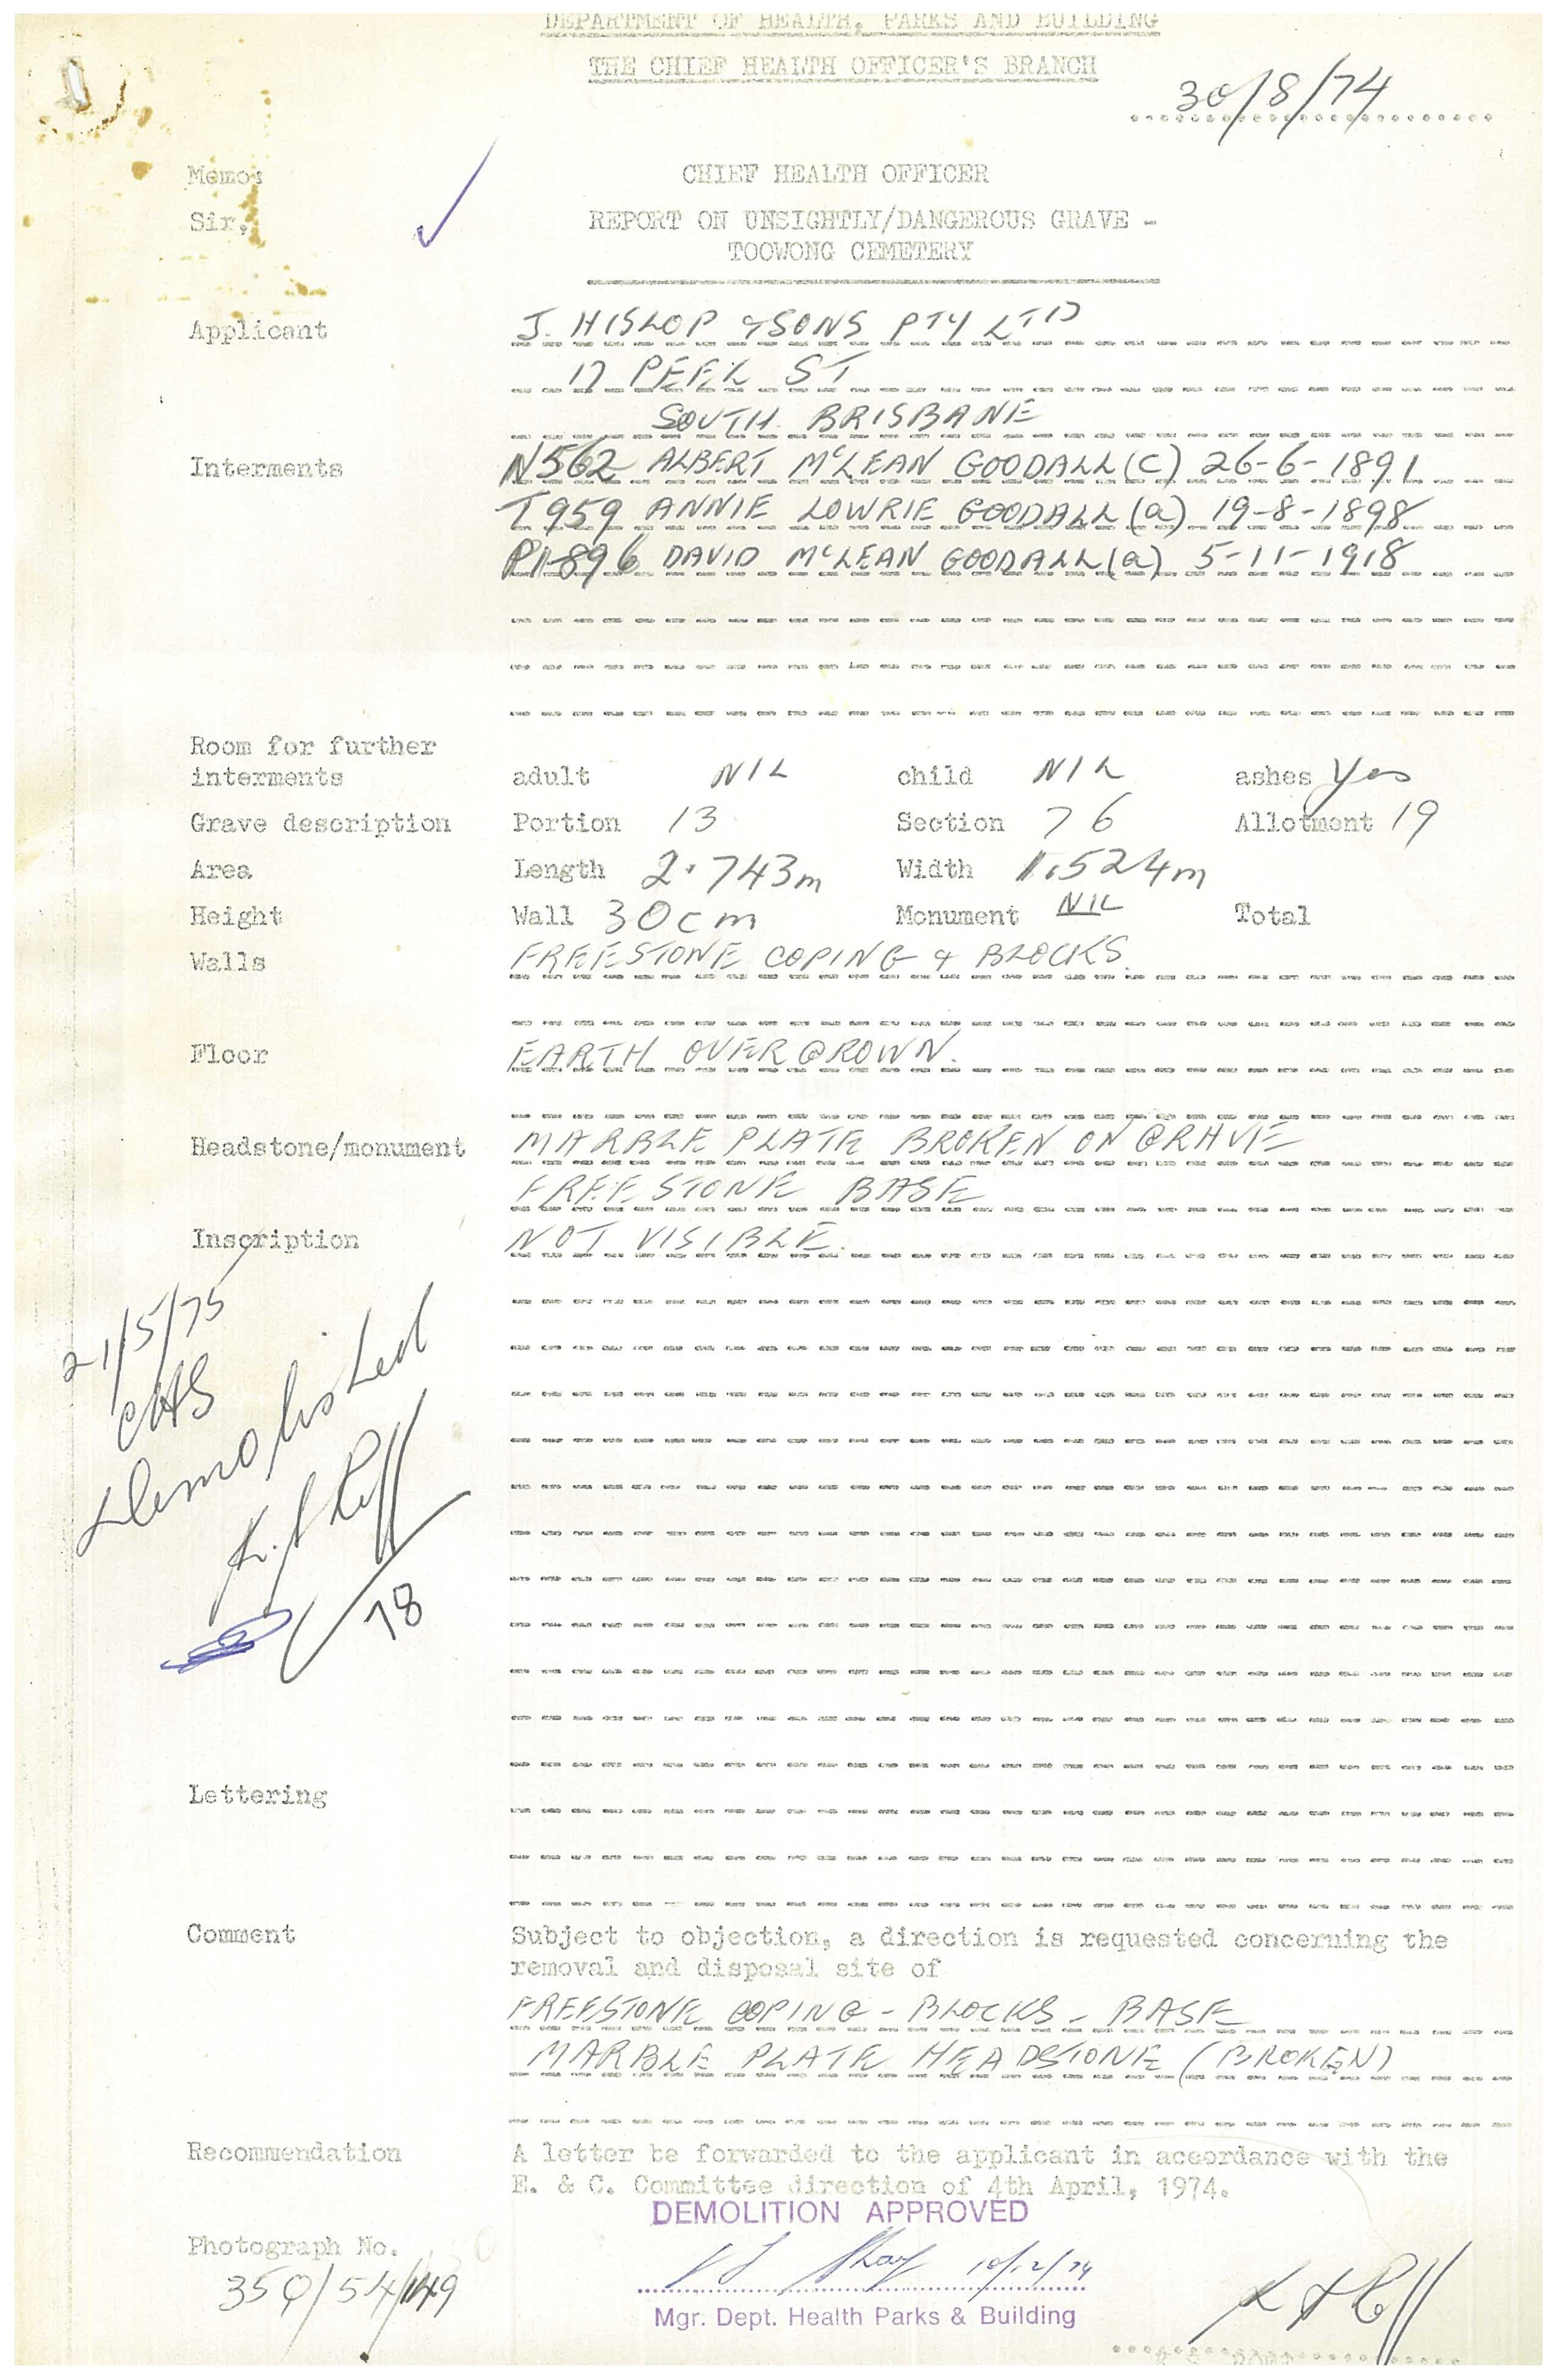 DEPARTMENT OF HEALTH, PARKS AND BUILDING
THE CHIEF HEALTH OFFICER'S BRANCH
30/8/74
Memo:
CHIEF HEALTH OFFICER
Sir,
REPORT ON UNSIGHTLY/DANGEROUS GRAVE -
TOOWONG CEMETERY
Applicant J. HISLOP & SONS PTY LTD
17 PEEL ST
SOUTH BRISBANE
Interments N562 ALBERT McLEAN GOODALL (C) 26-6-1891
T959 ANNIE LOWRIE GOODALL (a) 19-8-1898
896 DAVID McLEAN GOODALL (a) 5-11-1918
Room for further
interments adult NIL child NIL ashes Yes
Grave description Portion 13 Section 76 Allotment 19
Area Length 2.743m Width 1.524m
Height Wall 30cm Monument NIL Total
Walls FREESTONE COPING & BLOCKS.
Floor EARTH OVERGROWN.
Headstone/monument MARBLE PLATE BROKEN ON GRAVE
FREESTONE BASE
Inscription NOT VISIBLE.
21/5/75
CHS
Demolished
78
Lettering
Comment Subject to objection, a direction is requested concerning the
removal and disposal site of
FREESTONE COPING - BLOCKS - BASE
MARBLE PLATE HEADSTONE (BROKEN)
Recommendation A letter be forwarded to the applicant in accordance with the
E. & C. Committee direction of 4th April, 1974.
DEMOLITION APPROVED
Photograph No.
350/54/149
10/12/74
Mgr. Dept. Health Parks & Building